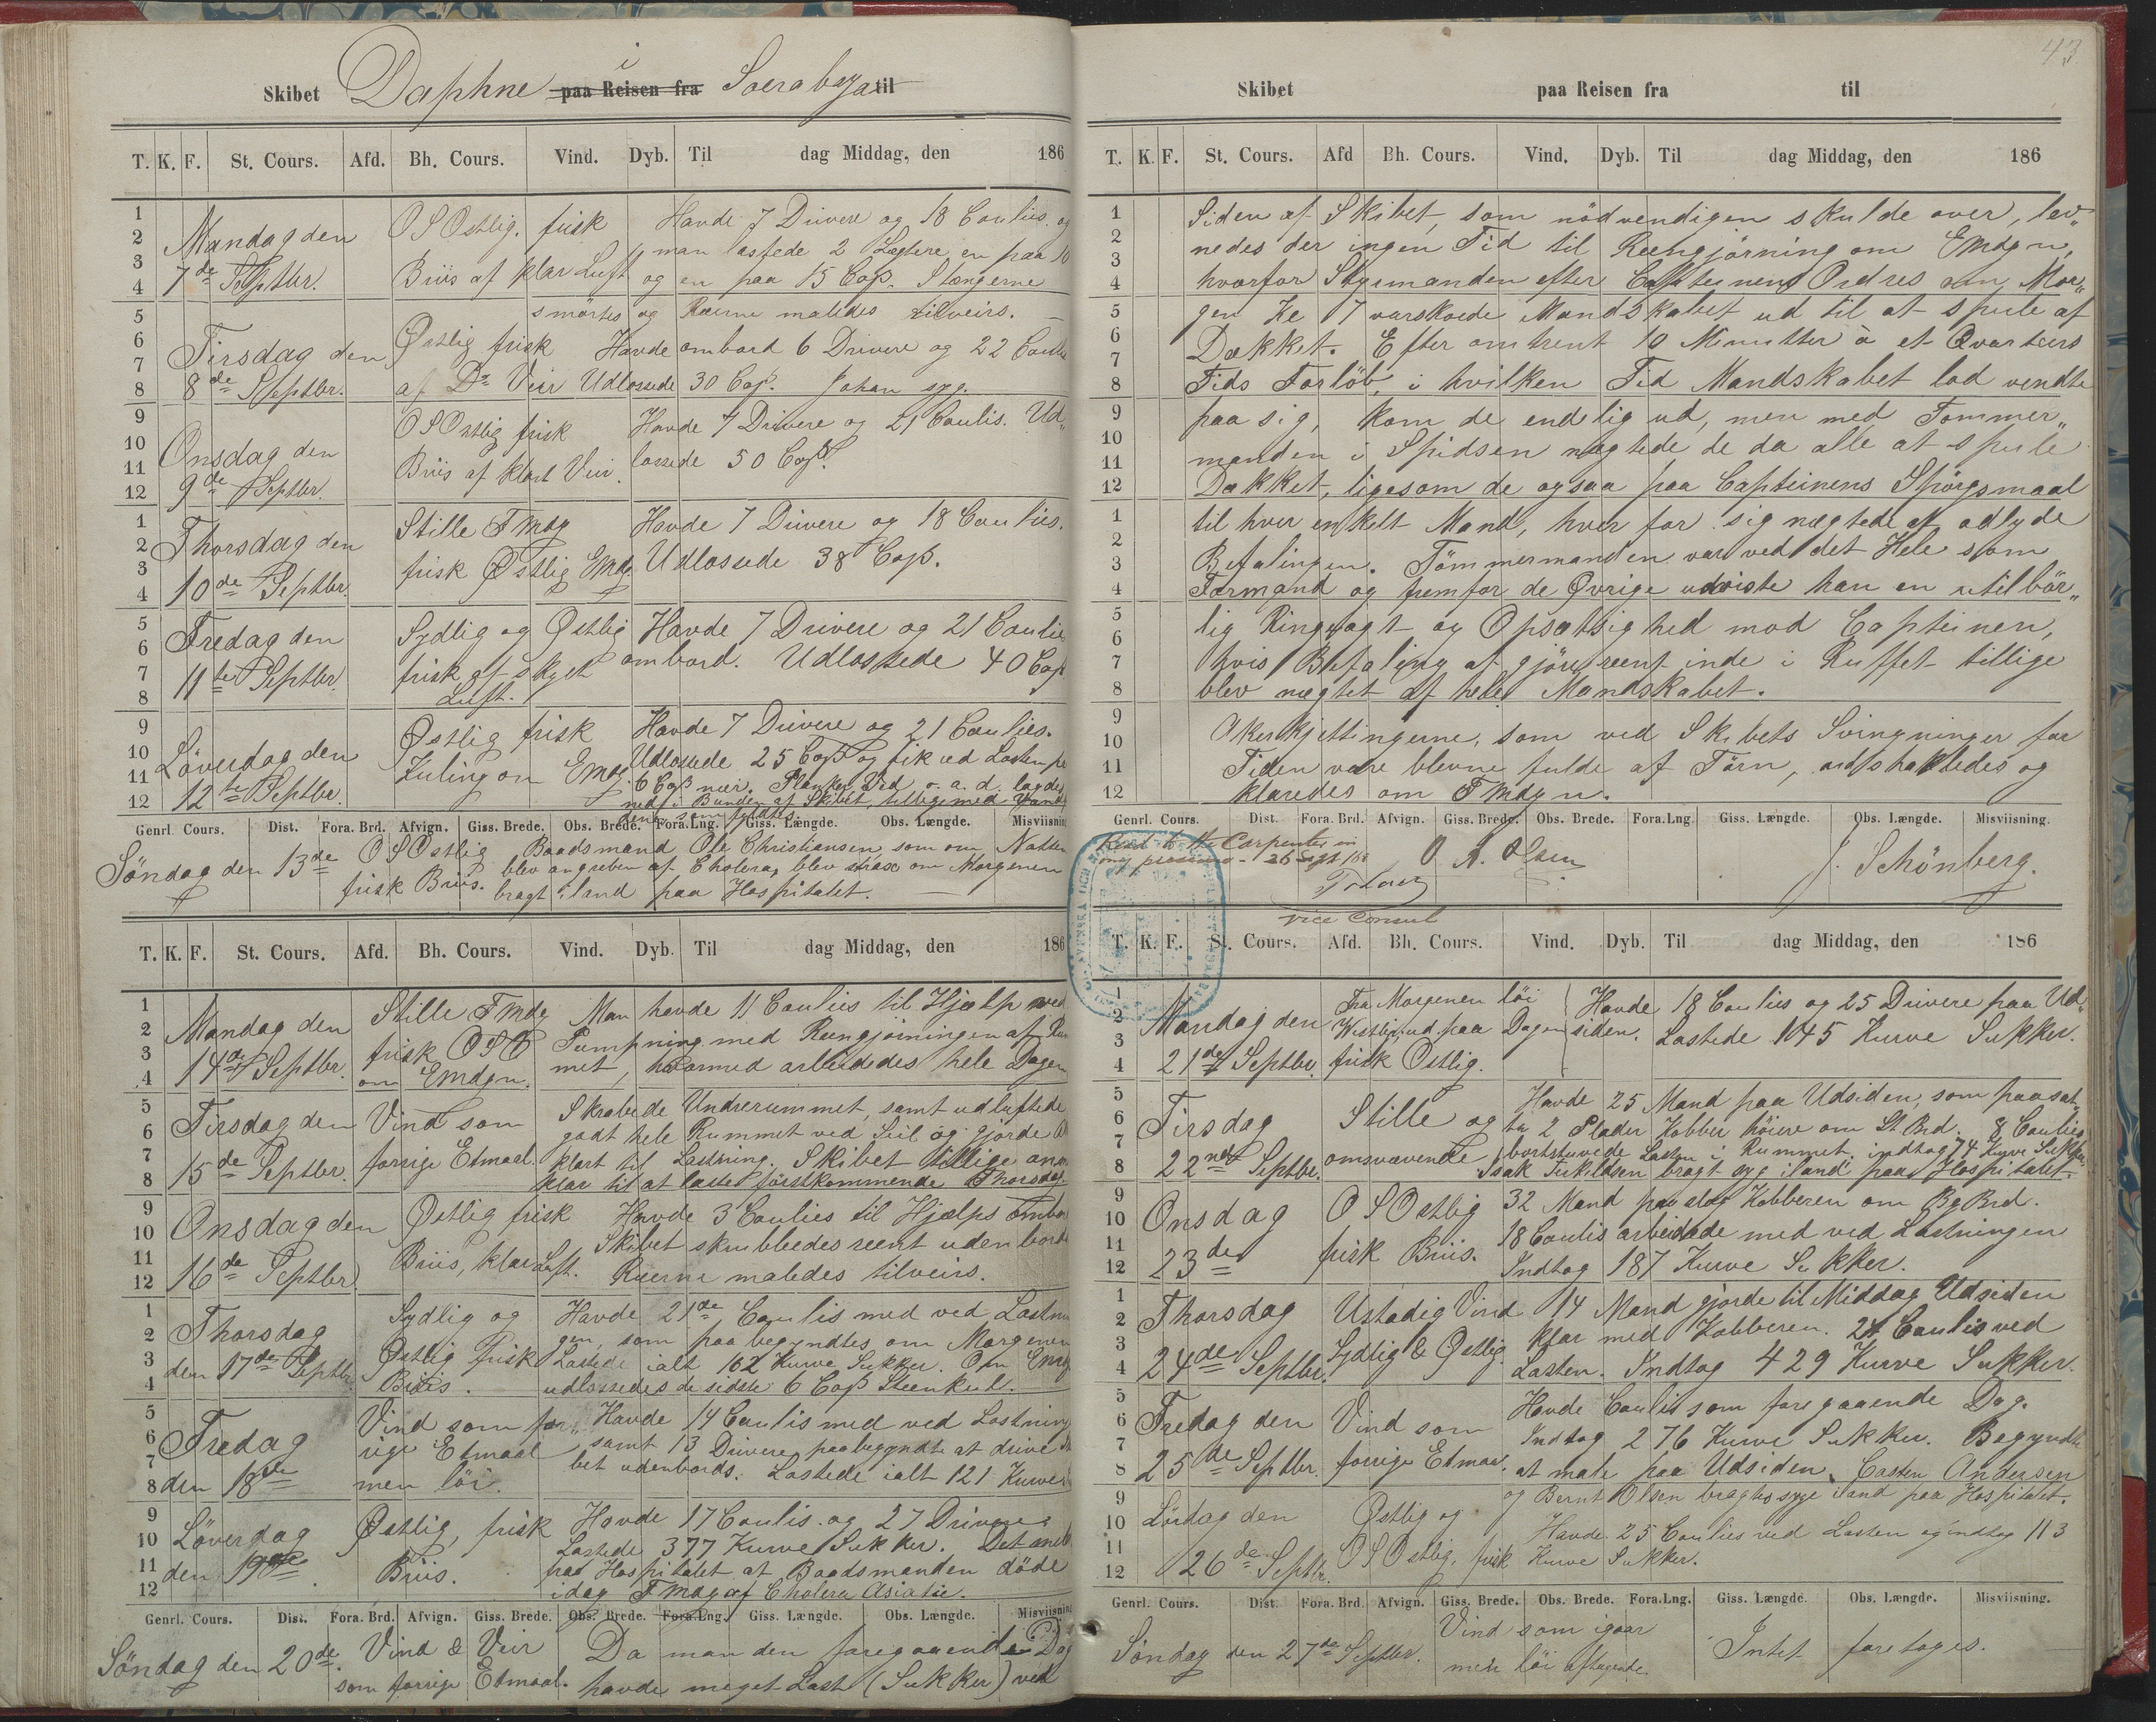 Skibet Daphne i paa Reisen fra Soerabaya til
T. K. F. St. Cours. Afd. Bh. Cours. Vind. Dyb. Til dag Middag, den 186
1 2 3 4 5 6 7 8 9 10 11 12
Mandag den
7de Septbr.
OSOstlig. frisk
Briis af klar Luft
Havde 7 Drivere og 18 Coulies. og
man lastede 2 Lægtere, en paa 10
og en paa 15 Coß. Stængerne
smörtes og Ræerne maledes tilveirs.
Tirsdag den
8de Septbr.
Østlig frisk
af Do Veir
Havde ombord 6 Drivere og 22 Coulies
Udlossede 30 Coß. Johan syg.
Onsdag den
9de Septbr.
OSOstlig frisk
Briis af klart Veir.
Havde 7 Drivere og 21 Coulis. Ud„
lossede 50 Coß.
1 2 3 4 5 6 7 8 9 10 11 12
Thorsdag den
10de Septbr.
Stille Fmdg
frisk Østlig Emdg.
Havde 7 Drivere og 18 Coulies.
Udlossede 38 Coß.
Fredag den
11te Septbr.
Sydlig og Østlig
frisk af skyet
Luft.
Havde 7 Drivere og 21 Coulies
ombord. Udlossede 40 Coß
Löverdag den
12te Septbr.
Østlig frisk
Kuling om Emdg.
Havde 7 Drivere og 21 Coulies.
Udlossede 25 Coß og fik ved Lasten
6 Coß nær. Planker, Ved o. a. d. lagdes
ned i Bunden af Skibet, tilligemed Vand
dene som fyldtes.
Genrl. Cours. Dist. Fora. Brd. Afvign. Giss. Brede. Obs. Brede. Fora.Lng. Giss. Længde. Obs. Længde. Misviisning
Söndag den 13de
OSOstlig
frisk Briis.
Baadsmand Ole Christiansen som om Natten
blev angreben af Cholera, blev strax om Morgenen
bragt iland paa Hospitalet.
T. K. F. St. Cours. Afd. Bh. Cours. Vind. Dyb. Til dag Middag, den 186
1 2 3 4 5 6 7 8 9 10 11 12
Mandag den
14de Septbr.
Stille Fmdg
frisk OSO
om Emdgn.
Man havde 11 Coulies til Hjælp med
Pumpning med Reengjöringen af Rum
met, hvormed arbeidedes hele Dagen
Tirsdag den
15de Septbr.
Vind som
forrige Etmaal.
Skrabede Undrerummet, samt udluftede
godt hele Rummet ved Seil og gjorde
klart til Lastning. Skibet tillige
klar til at laste förstkommende Thorsdag.
Onsdag den
16de Septbr.
Østlig frisk
Briis, klar Luft.
Havde 3 Coulies til Hjælps ombord
Skibet skrubbedes reent udenbords
Ræerne maledes tilveirs.
1 2 3 4 5 6 7 8 9 10 11 12
Thorsdag
den 17de Septbr.
Sydlig og
Østlig frisk
Briis.
Havde 21de Coulis med ved Lastnin
gen, som paabegyndtes om Morgenen
Lastede ialt 162 Kurve Sukker. Om Emdg
udlossedes de sidste 6 Coß Steenkul.
Fredag
den 18de
Vind som for„
rige Etmaal
men löi.
Havde 14 Coulis med ved Lastning
samt 13 Drivere, paabegyndte at drive Ski
bet udenbords. Lastede ialt 121 Kurve
Löverdag
den 19de.
Østlig, frisk
Briis.
Havde 17 Coulis. og 27 Drivere
Lastede 377 Kurve Sukker. Det meldtes
paa Hospitalet at Baadsmanden döde
idag Fmdg af Cholera Asiatic.
Genrl. Cours. Dist. Fora. Brd. Afvign. Giss. Brede. Obs. Brede. Fora.Lng. Giss. Længde. Obs. Længde. Misviisning
Söndag den 20de.
Vind & Veir
som forrige Etmaal.
Da man den foregaaende Dag
havde meget Last (Sukker) ved
43
Skibet paa Reisen fra til
T. K. F. St. Cours. Afd Bh. Cours. Vind. Dyb. Til dag Middag, den 186
1 2 3 4 5 6 7 8 9 10 11 12
Siden af Skibet, som nödvendigen skulde over, lev„
nedes der ingen Tid til Reengjörning om Emdgn,
hvorfor Styrmanden efter Capteinens Ordres om Mor„
gen Kl 7 varskoede Mandskabet ud til at spule af
Dækket. Efter omtrent 10 Minutter à et Qvarteers
Tids Forlöb, i hvilken Tid Mandskabet lod vendte
paa sig, kom de endelig ud, men med Tømmer„
manden i Spidsen nægtede de da alle at spule
Dækket, ligesom de ogsaa paa Capteinens Spörgsmaal
1 2 3 4 5 6 7 8 9 10 11 12
til hver enkelt Mand, hver for sig nægtede at adlyde
Befalingen. Tömmermanden var ved det Hele som
Formand og fremfor de Øvrige udviste han en utilbör„
lig Ringeagt og Opsætsighed mod Capteinen,
hvis Befaling at gjöre reent inde i Ruffet tillige
blev nægtet af hele Mandskabet.
Akerkjettingerne, som ved Skibets Svingninger for
Tiden vare blevne fulde af Törn, udshakledes og
klaredes om Fmdgn.
Genrl. Cours. Dist. Fora. Brd. Afvign. Giss. Brede. Obs. Brede. Fora.Lng. Giss. Længde. Obs. Længde. Misviisning.
Read to the Carpenter in
my presence - 26 Sept 186
Vice Consul
O. A. Olsen
J. Schönberg.
T. K. F. St. Cours. Afd. Bh. Cours. Vind. Dyb. Til dag Middag, den 186
1 2 3 4 5 6 7 8 9 10 11 12
Mandag den
21de Septbr.
Fra Morgenen löi
Westlig, ud paa Dagen
frisk Østlig.
Havde 18 Coulies og 25 Drivere paa Ud„
siden. Lastede 145 Kurve Sukker.
Tirsdag
22nde Septbr.
Stille og
omsvævende
Havde 25 Mand paa Udsiden, som paasat
te 2 Plader Kobber höiere om St. Brd. 8 Coulies
bortstuvede Lasten i Rummet, indtog 74 Kurve Sukker.
Isak bragt syg iland paa Hospitalet.
Onsdag
23de
OSOstlig
frisk Briis.
32 Mand paaslog Kobberen om Bg Brd.
18 Coulis arbeidede med ved Lastningen
Indtog 187 Kurve Sukker.
1 2 3 4 5 6 7 8 9 10 11 12
Thorsdag
24de Septbr.
Ustadig Vind
Sydlig & Østlig.
14 Mand gjorde til Middag Udsiden
klar med Kobberen. 24 Coulis ved
Lasten. Indtog 429 Kurve Sukker.
Fredag den
25de Septbr.
Vind som
forrige Etmaal.
Havde Coulis som foregaaende Dag.
Indtog 276 Kurve Sukker. Begyndte
at male paa Udsiden. Casten Andersen
og Bernt Olsen bragtes syge iland paa Hospitalet.
Lördag den
26de Septbr.
Østlig og
OSOstlig, frisk
Havde 25 Coulies ved Lasten og indtog 113
Kurve Sukker.
Genrl. Cours. Dist. Fora. Brd. Afvign. Giss. Brede. Obs. Brede. Fora.Lng. Giss. Længde. Obs. Længde. Misviisning.
Söndag den 27de Septbr.
Vind som igaar
men löi aftagende.
Intet foretoges.